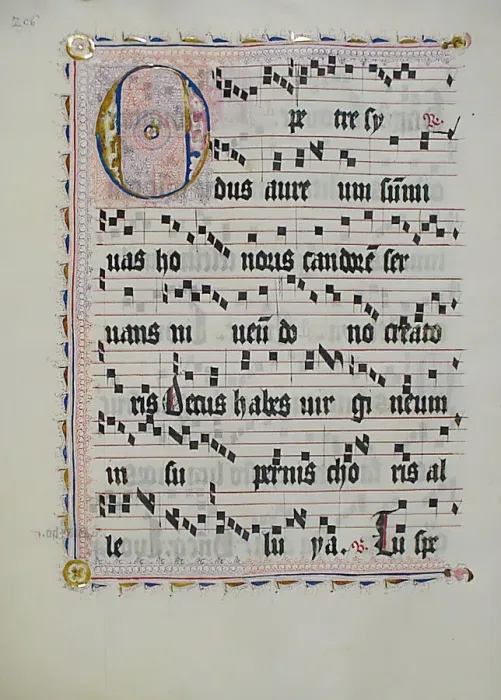 206
O pe tre sy R.
dus aure um sūmi
uas ho noris candorē ser
uans in do no creato
ris Decus habes uir gi neum
in su pernis cho ris al
le lu ya. V. Tu spe